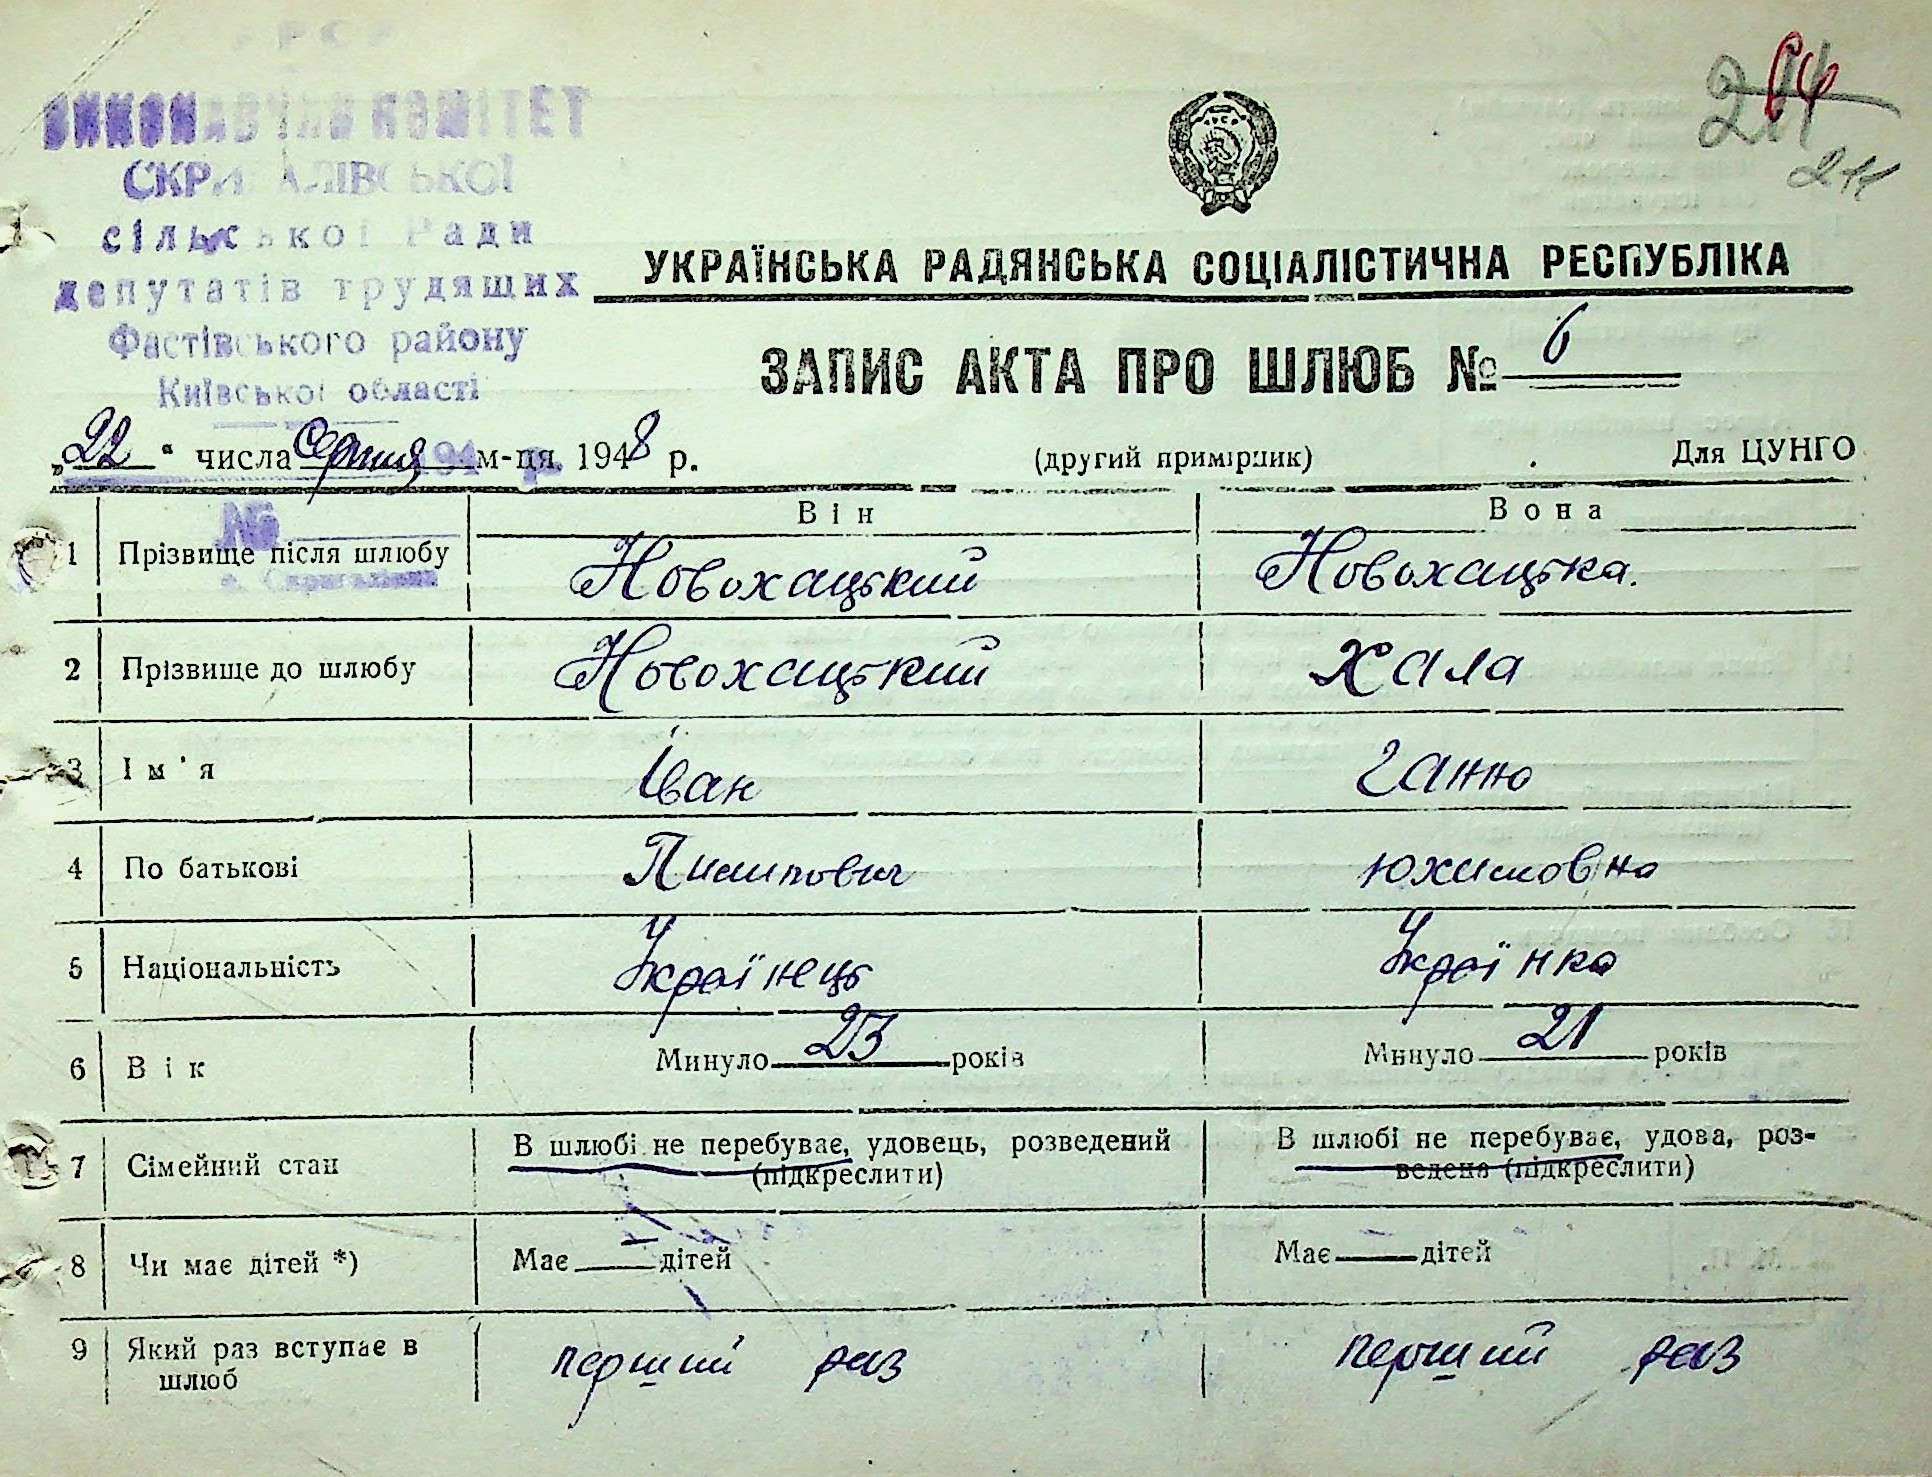 УРСР
ВИКОНАВЧИЙ КОМІТЕТ
СКРИГАЛІВСЬКОЇ
сільської Ради
депутатів трудящих
Фастівського району
Київської області
194 р.
№
с. Скригалівка
64
211
УКРАЇНСЬКА РАДЯНСЬКА СОЦІАЛІСТИЧНА РЕСПУБЛІКА
ЗАПИС АКТА ПРО ШЛЮБ № 6
„22“ числа Серпня м-ця 1948 р. (другий примірник) Для ЦУНГО
Він Вона
1 Прізвище після шлюбу Новохацький Новохацька.
2 Прізвище до шлюбу Новохацький Хала
3 Ім'я Іван Ганна
4 По батькові Пилипович Юхимовна
5 Національність Українець Українка
6 Вік Минуло 23 років Минуло 21 років
7 Сімейний стан В шлюбі не перебуває, удовець, розведений (підкреслити) В шлюбі не перебуває, удова, роз-
ведена (підкреслити)
8 Чи має дітей *) Має — дітей Має — дітей
9 Який раз вступає в шлюб перший раз перший раз